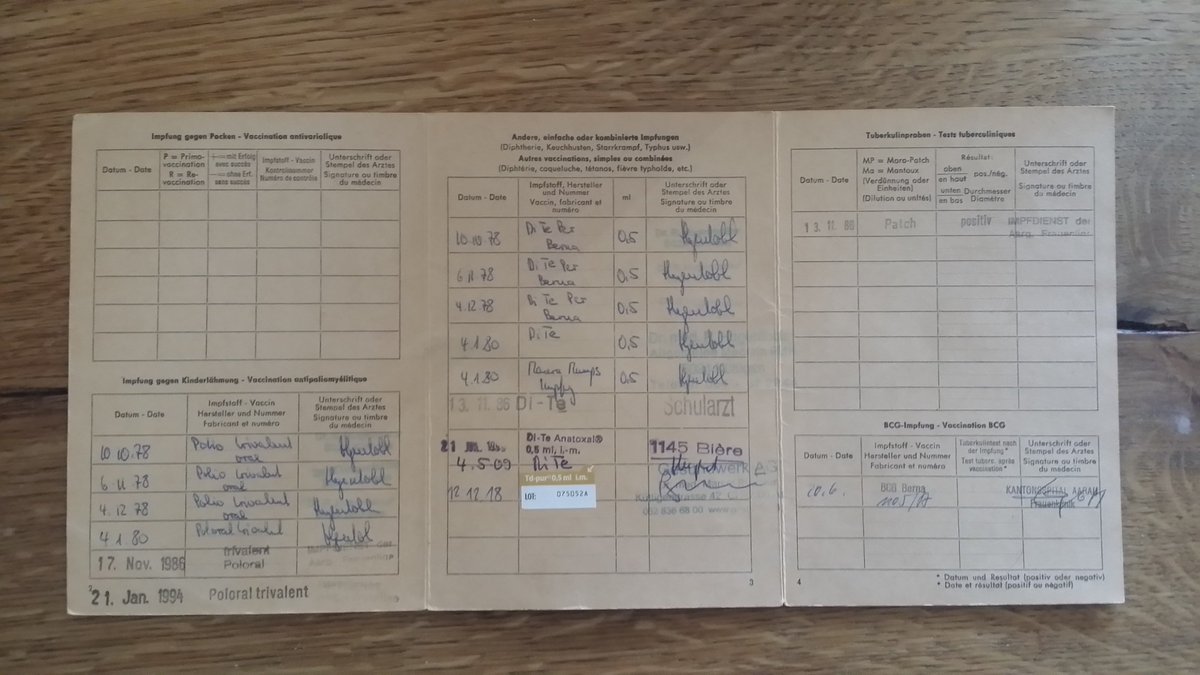 Impfung gegen Pocken - Vaccination antivariolique
Datum - Date
P = Primo-
vaccination
R = Re-
vaccination
+ = mit Erfolg
avec succès
— = ohne Erf.
sans succès
Impfstoff - Vaccin
Kontrollnummer
Numéro de contrôle
Unterschrift oder
Stempel des Arztes
Signature ou timbre
du médecin
Impfung gegen Kinderlähmung - Vaccination antipoliomyélitique
Datum - Date
Impfstoff - Vaccin
Hersteller und Nummer
Fabricant et numéro
Unterschrift oder
Stempel des Arztes
Signature ou timbre
du médecin
10.10.78 Polio trivalent
oral
6 11 78 Polio trivalent
oral
4 12 78 Polio trivalent
oral
4 1 80 Poloral trivalent
17. Nov. 1986 trivalent
Poloral
21. Jan. 1994 Poloral trivalent
Andere, einfache oder kombinierte Impfungen
(Diphtherie, Keuchhusten, Starrkrampf, Typhus usw.)
Autres vaccinations, simples ou combinées
(Diphtérie, coqueluche, tétanos, fièvre typhoïde, etc.)
Datum - Date
Impfstoff, Hersteller
und Nummer
Vaccin, fabricant et
numéro
ml
Unterschrift oder
Stempel des Arztes
Signature ou timbre
du médecin
10.10.78 Di Te Per
Berna 0,5
6 11 78 Di Te Per
Berna 0,5
4.12.78 Di Te Per
Berna 0,5
4 1 80 Di Te 0,5
4.1.80 Mumps 0.5
13. 11. 86 Di-Te Schularzt
21 Di-Te Anatoxal®
0,5 ml, i.-m. 1145 Bière
4.5.09 Di Te
Td-pur® 0,5 ml i.m.
12 12 18 LOT: 075052A
062 836 68 00
3
Tuberkulinproben - Tests tuberculiniques
Datum - Date
MP = Moro-Patch
Ma = Mantoux
(Verdünnung oder
Einheiten)
(Dilution ou unités)
Résultat:
oben
en haut pos./nég.
unten Durchmesser
en bas Diamètre
Unterschrift oder
Stempel des Arztes
Signature ou timbre
du médecin
13. 11. 86 Patch positiv IMPFDIENST der
Aarg. Frauenliga
BCG-Impfung - Vaccination BCG
Datum - Date
Impfstoff - Vaccin
Hersteller und Nummer
Fabricant et numéro
Tuberkulintest nach
der Impfung*
Test tuberc. après
vaccination*
Unterschrift oder
Stempel des Arztes
Signature ou timbre
du médecin
BCG Berna KANTONSSPITAL AARAU
Frauenklinik
* Datum und Resultat (positiv oder negativ)
* Date et résultat (positif ou négatif)
4